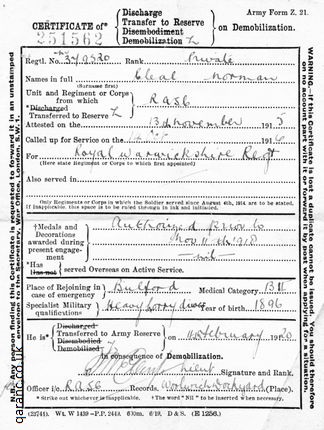 Army Form Z. 21.
CERTIFICATE of*
Discharge
Transfer to Reserve
Disembodiment
Demobilization
on Demobilization.
251562
Regtl. No. Rank Private
Names in full Cleal Norman
(Surname first)
Unit and Regiment or Corps
from which
*Discharged
Transferred to Reserve
RASC
Attested on the 13th November 191
Called up for Service on the 191
For Royal Warwickshire Regt
(Here state Regiment or Corps to which first appointed)
Also served in
Only Regiments or Corps in which the Soldier served since August 4th, 1914 are to be stated.
If inapplicable, this space is to be ruled through in ink and initialled.
†Medals and
Decorations
awarded during
present engage-
ment
Authorized prior to
Nov 11th 1918
nil
*Has
Has not
served Overseas on Active Service.
Place of Rejoining in
case of emergency
Bulford
Medical Category B II
Specialist Military
qualifications
Heavy Lorry
Year of birth 1896
He is*
Discharged
Transferred to Army Reserve
Disembodied
Demobilized
on February 1920
In consequence of Demobilization.
Signature and Rank.
Officer i/c RASC Records. Woolwich Dockyard (Place).
* Strike out whichever is inapplicable. † The word "Nil" to be inserted when necessary.
(22744). Wt. W 1439—P.P. 2443. 6/19. D & S. (E 1256.)
N.B. Any person finding this Certificate is requested to forward it in an unstamped
envelope to the Secretary, War Office, London, S.W. 1.
WARNING.—If this Certificate is lost a duplicate cannot be issued. You should therefore
on no account part with it or forward it by post when applying for a situation.
qaranc.co.uk